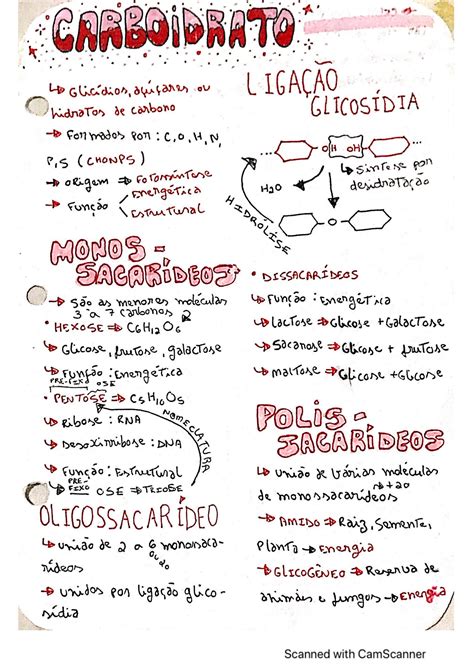 CARBOIDRATO
↳ Glicídios, açúcares ou
hidratos de carbono
→ Formados por: C, O, H, N,
P, S (CHONPS)
→ Origem → Fotossíntese
→ Função Energética
Estrutural
MONOS-
SACARÍDEOS
→ São as menores moléculas
3 a 7 carbonos
• HEXOSE → C6H12O6
↳ Glicose, frutose, galactose
↳ Função: Energética
PRE-FIXO OSE
• PENTOSE → C5H10O5
↳ Ribose: RNA
↳ Desoxirribose: DNA
↳ Função: Estrutural
PRE-FIXO OSE → TRIOSE
NOMECLATURA
OLIGOSSACARÍDEO
↳ união de 2 a 6 monossaca-
rídeos
→ unidos por ligação glico-
sídia
LIGAÇÃO
GLICOSÍDIA
OH OH
H2O
↳ Síntese por
desidratação
O
HIDRÓLISE
• DISSACARÍDEOS
↳ Função: Energética
↳ lactose → Glicose + Galactose
↳ Sacanose → Glicose + frutose
↳ maltose → Glicose + Glicose
POLIS-
SACARÍDEOS
↳ união de várias moléculas
de monossacarídeos + 20
→ AMIDO → Raiz, Semente,
Planta → Energia
→ GLICOGÊNEO → Reserva de
animais e fungos → Energia
Scanned with CamScanner